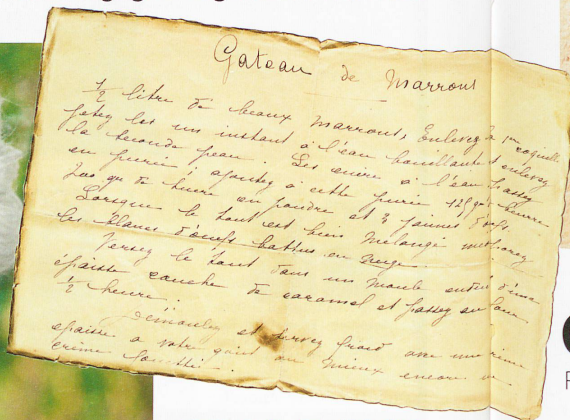 Gateau de Marrons
1/2 litre de beaux marrons, Enlevez la 1re coquille
jetez les un instant à l'eau bouillante et enlevez
la seconde peau. Les cuire à l'eau, passez
en purée, ajoutez à cette purée 125 grs beurre
grs de sucre en poudre et 3 jaunes d'œufs
Lorsque le tout est bien mélangé
les blancs d'œufs battus en neige.
Versez le tout dans un moule enduit d'une
épaisse couche de caramel et passez au four
1/2 heure.
Démoulez et servez froid avec une crème
épaisse à votre goût ou mieux encore
crème fouettée.